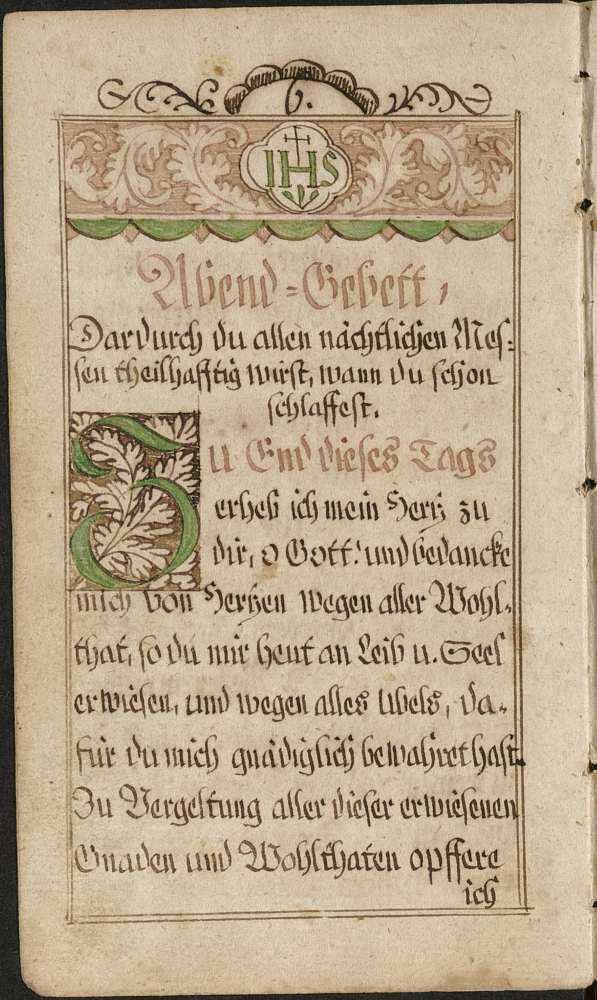 6.
IHS
Abend-Gebett,
Dardurch du allen nächtlichen Mes-
sen theilhafftig wirst, wann du schon
schlaffest.
Zu End dieses Tags
erheb ich mein Hertz zu
dir, o Gott! und bedancke
mich von Hertzen wegen aller Wohl-
that, so du mir heut an Leib u. Seel
erwiesen, und wegen alles Ubels, da-
für du mich gnädiglich bewahret hast.
Zu Vergeltung aller dieser erwiesenen
Gnaden und Wohlthaten opffere
ich